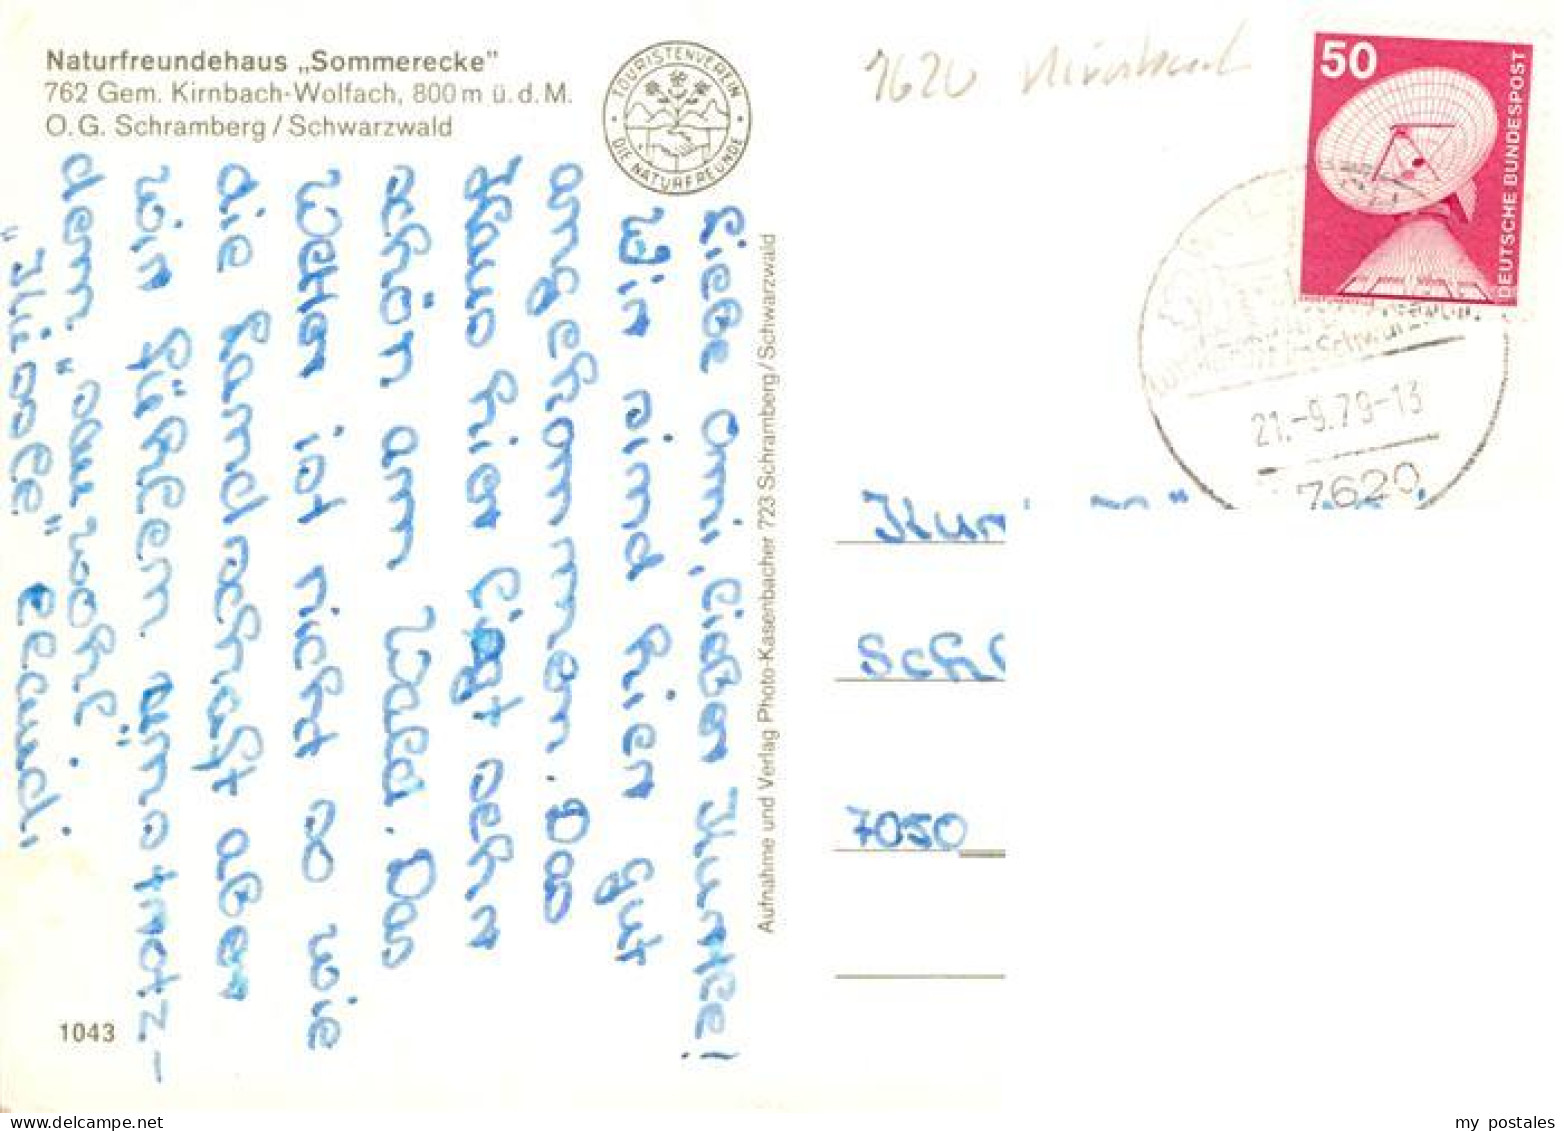 Naturfreundehaus „Sommerecke"
762 Gem. Kirnbach-Wolfach, 800 m ü. d. M.
O. G. Schramberg / Schwarzwald
TOURISTENVEREIN
DIE NATURFREUNDE
Liebe Omi, lieber Kurtle!
Wir sind hier gut
angekommen. Das
Haus hier liegt sehr
schön am Wald. Das
Wetter ist nicht so wie
die Landschaft aber
wir fühlen uns trotz-
dem "sauwohl".
Aufnahme und Verlag Photo-Kasenbacher 723 Schramberg / Schwarzwald
1043
7620
50
DEUTSCHE BUNDESPOST
21.-9.79-13
7620
7050
my postales